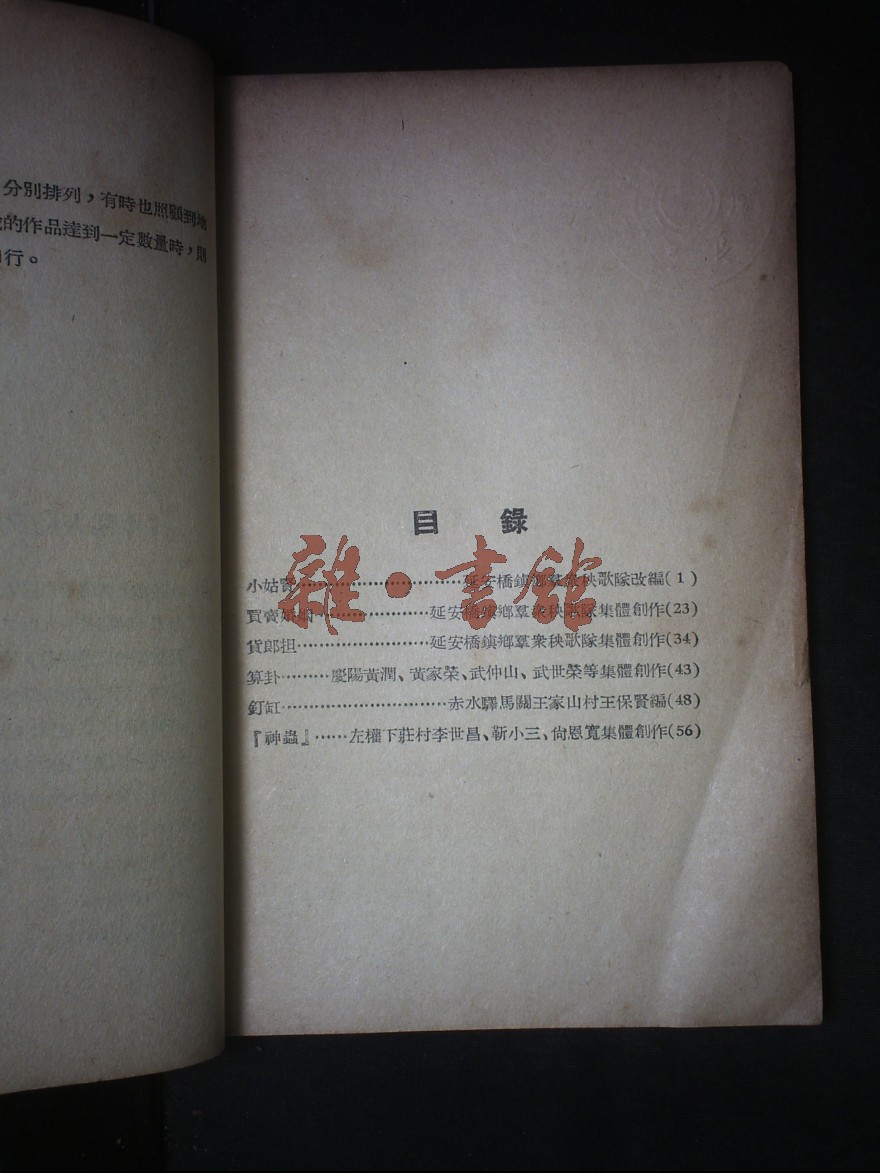 分別排列，有時也照顧到地
的作品達到一定數量時，則
行。
目 錄
小姑賢…………………………延安橋鎮鄉羣衆秧歌隊改編(1)
買賣婚姻………………延安橋鎮鄉羣衆秧歌隊集體創作(23)
貨郎担…………………延安橋鎮鄉羣衆秧歌隊集體創作(34)
算卦………慶陽黃潤、黃家榮、武仲山、武世榮等集體創作(43)
釘缸………………………赤水驛馬關王家山村王保賢編(48)
『神蟲』……左權下莊村李世昌、靳小三、尙恩寬集體創作(56)
雜·書館